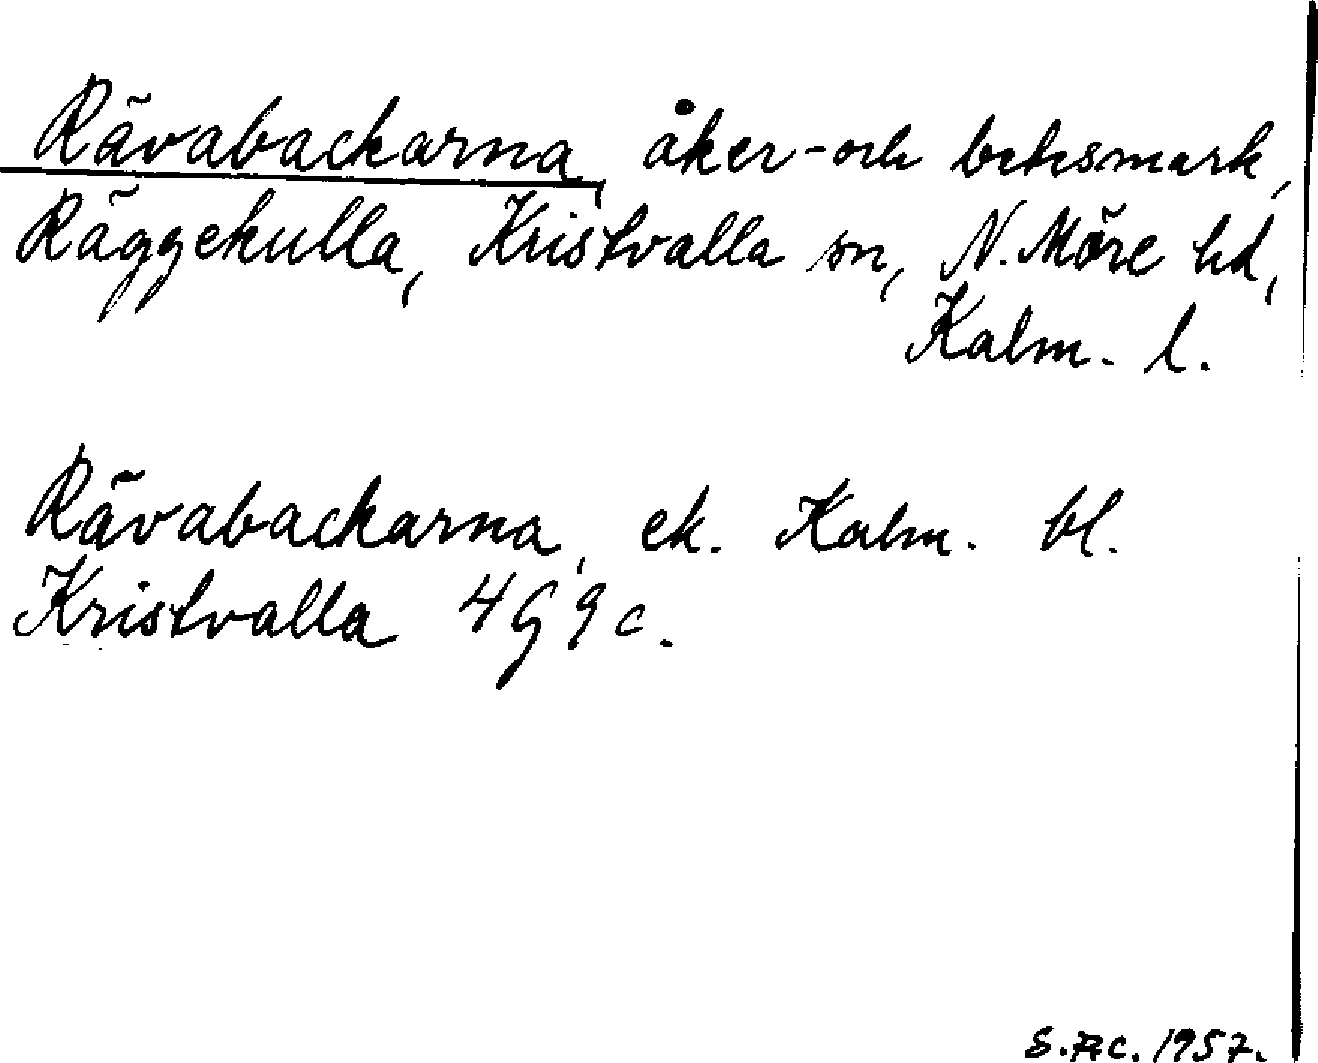 Rävabackarna, åker- och betesmark,
Räggekulla, Kristvalla sn, N. Möre hd,
Kalm. l.
Rävabackarna, ek. Kalm. bl.
Kristvalla 4G9c.
1957.